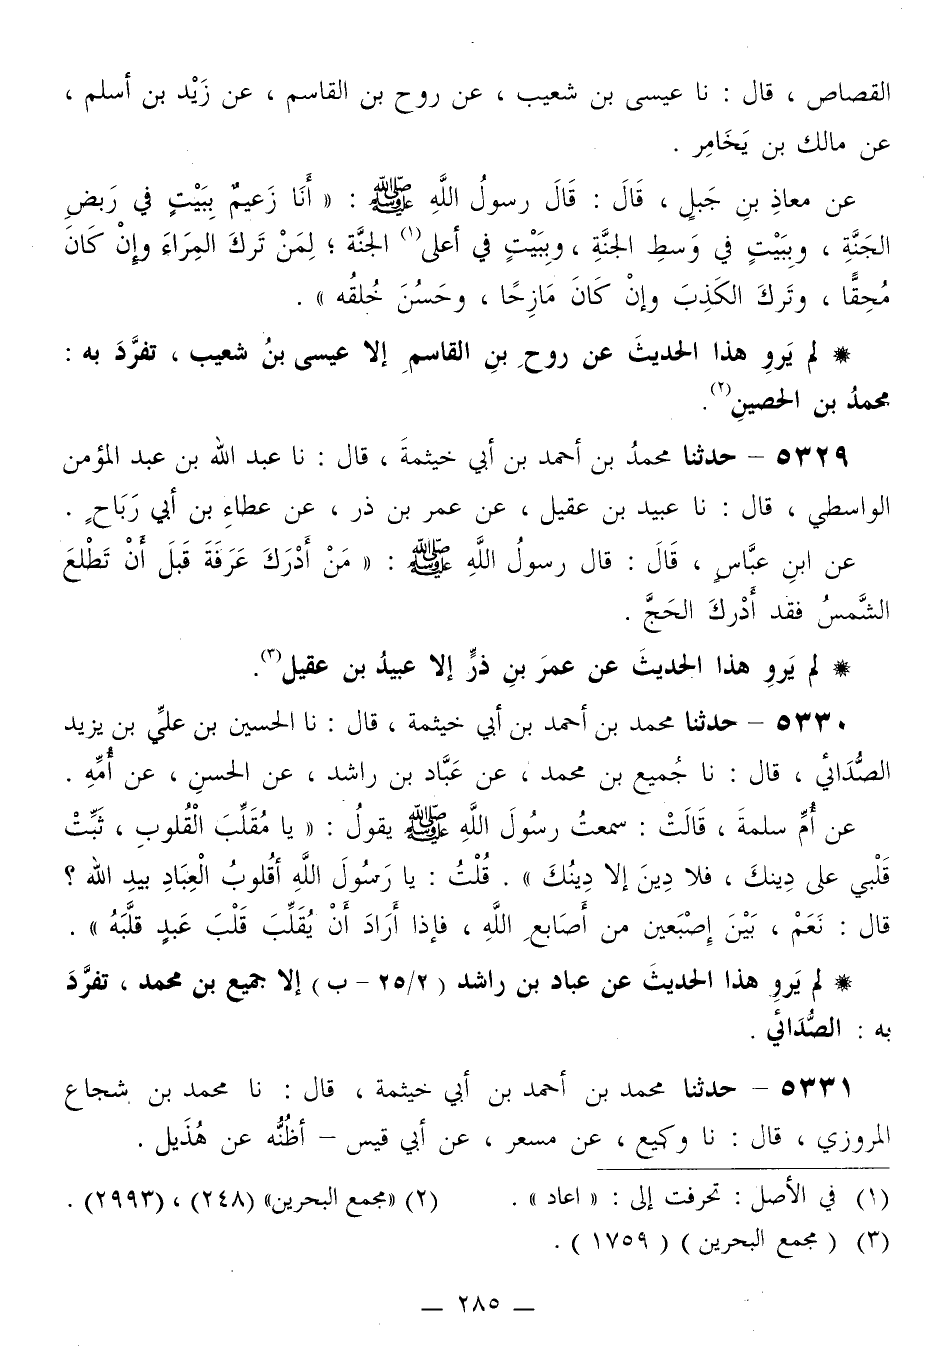 القصاص ، قال : نا عيسى بن شعيب ، عن روح بن القاسم ، عن زَيْد بن أسلم ،
عن مالك بن يَخَامِر .
عن معاذِ بنِ جَبلٍ ، قَالَ : قَالَ رسولُ اللَّهِ ﷺ : « أَنَا زَعيمٌ بِبَيْتٍ في رَبضِ
الجَنَّةِ ، وبِبَيْتٍ في وَسطِ الجنَّةِ ، وبِبَيْتٍ في أعلى(١) الجنَّة ؛ لِمَنْ تَركَ المِرَاءَ وإِنْ كَانَ
مُحِقًّا ، وتَركَ الكَذِبَ وإنْ كَانَ مَازِحًا ، وحَسُنَ خُلقُه » .
* لم يَروِ هذا الحديثَ عن روحِ بنِ القاسمِ إلا عيسى بنُ شعيب ، تفرَّدَ به :
محمدُ بن الحصينِ(٢).
٥٣٢٩ - حدثنا محمدُ بن أحمد بن أبي خيثمةَ ، قال : نا عبد الله بن عبد المؤمن
الواسطي ، قال : نا عبيد بن عقيل ، عن عمر بن ذر ، عن عطاءِ بن أبي رَبَاحٍ .
عن ابنِ عبَّاسٍ ، قَالَ : قال رسولُ اللَّهِ ﷺ : « مَنْ أَدْرَكَ عَرَفَةَ قَبلَ أَنْ تَطْلعَ
الشَّمسُ فقد أَدْركَ الحَجَّ .
* لم يَروِ هذا الحديثَ عن عمرَ بنِ ذرٍّ إلا عبيدُ بن عقيل(٣).
٥٣٣٠ - حدثنا محمد بن أحمد بن أبي خيثمة ، قال : نا الحسين بن عليِّ بن يزيد
الصُّدَائي ، قال : نا جُميع بن محمد ، عن عَبَّاد بن راشد ، عن الحسنِ ، عن أُمِّهِ .
عن أُمِّ سلمةَ ، قَالَتْ : سمعتُ رسُولَ اللَّهِ ﷺ يقولُ : « يا مُقَلِّبَ الْقُلوبِ ، ثَبِّتْ
قَلْبي على دِينكَ ، فلا دِينَ إلا دِينُكَ » . قُلْتُ : يا رَسُولَ اللَّهِ أقُلوبُ الْعِبَادِ بيدِ الله ؟
قال : نَعَمْ ، بَيْنَ إِصْبَعين من أَصَابعِ اللَّهِ ، فإذا أَرَادَ أَنْ يُقَلِّبَ قَلْبَ عَبدٍ قلَّبَهُ » .
* لم يَروِ هذا الحديثَ عن عباد بن راشد ( ٢٥/٢ - ب ) إلا جميع بن محمد ، تفرَّدَ
به : الصُّدَائي .
٥٣٣١ - حدثنا محمد بن أحمد بن أبي خيثمة ، قال : نا محمد بن شجاع
المروزي ، قال : نا وكيع ، عن مسعر ، عن أبي قيس - أظنُّه عن هُذَيل .
(١) في الأصل : تحرفت إلى : « اعاد » . (٢) «مجمع البحرين» (٢٤٨) ، (٢٩٩٣) .
(٣) ( مجمع البحرين ) ( ١٧٥٩ ) .
— ٢٨٥ —